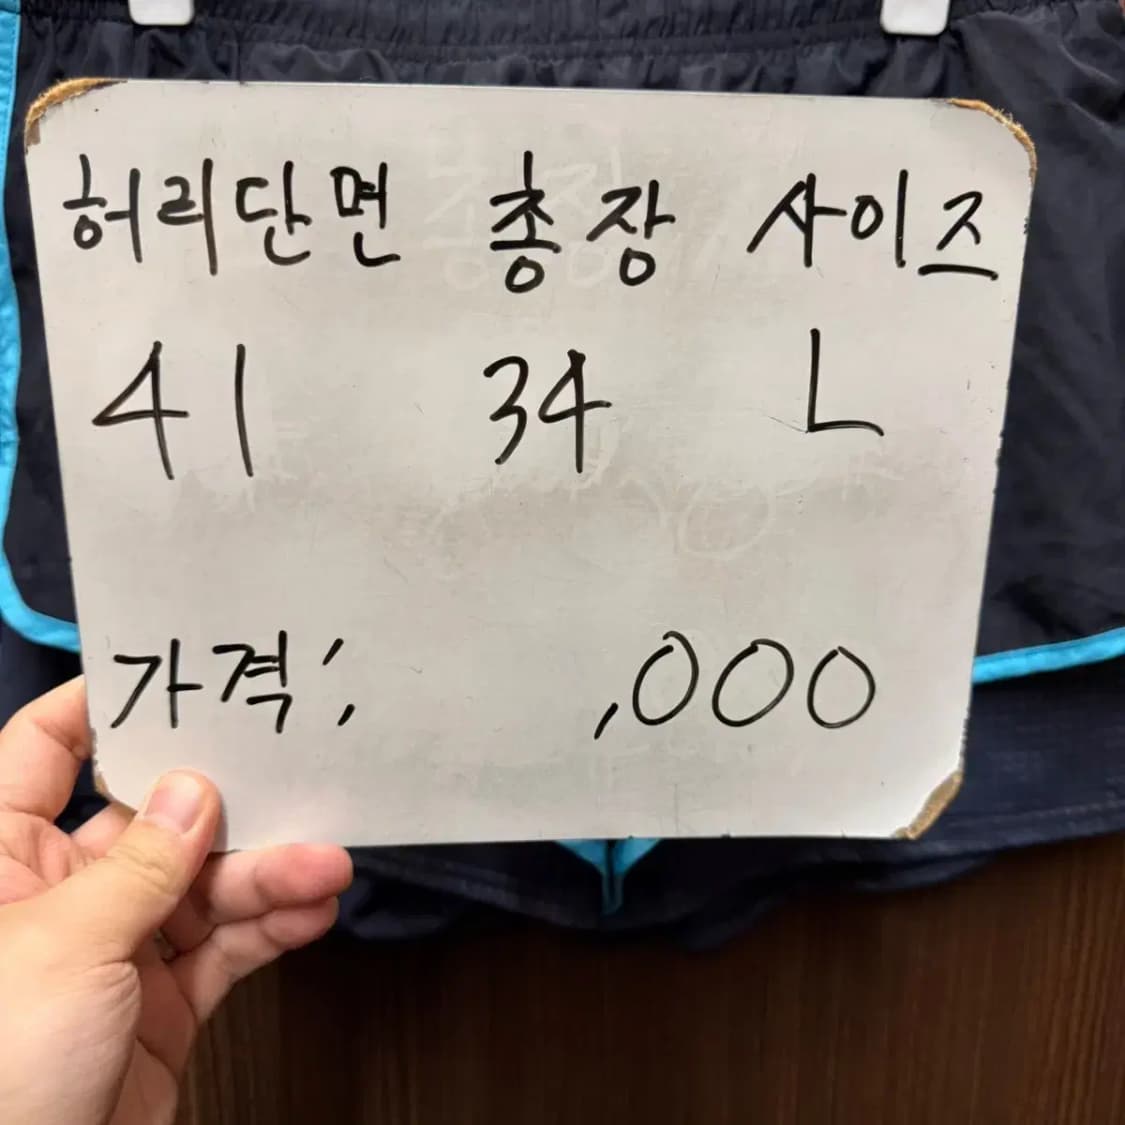 허리단면 총장 사이즈
41 34 L
가격: ,000